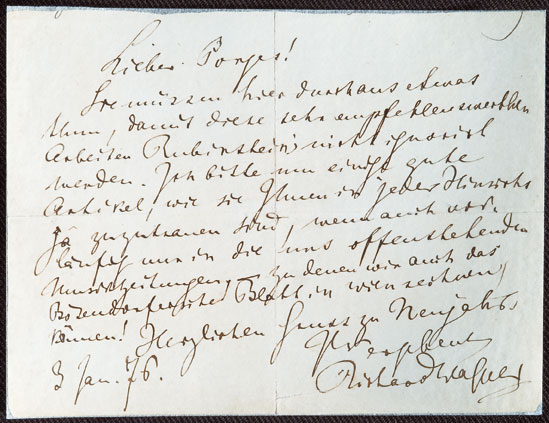 Lieber Porges!
Sie müssen hier durchaus etwas
thun, damit diese sehr empfehlenswerthen
Arbeiten Rubinstein's nicht ignorirt
werden. Ich bitte um einige gute
Artikel, wie sie Ihnen in jeder Hinsicht
ja zuzutrauen sind, wenn auch vor-
läufig nur in die uns offenstehenden
Musikzeitungen, zu denen wir auch das
Bösendorfer'sche Blatt in Wien rechnen
können!
Herzlichen Gruss zu Neujahr
Ihr ergebener
3 Jan. 76.
Richard Wagner